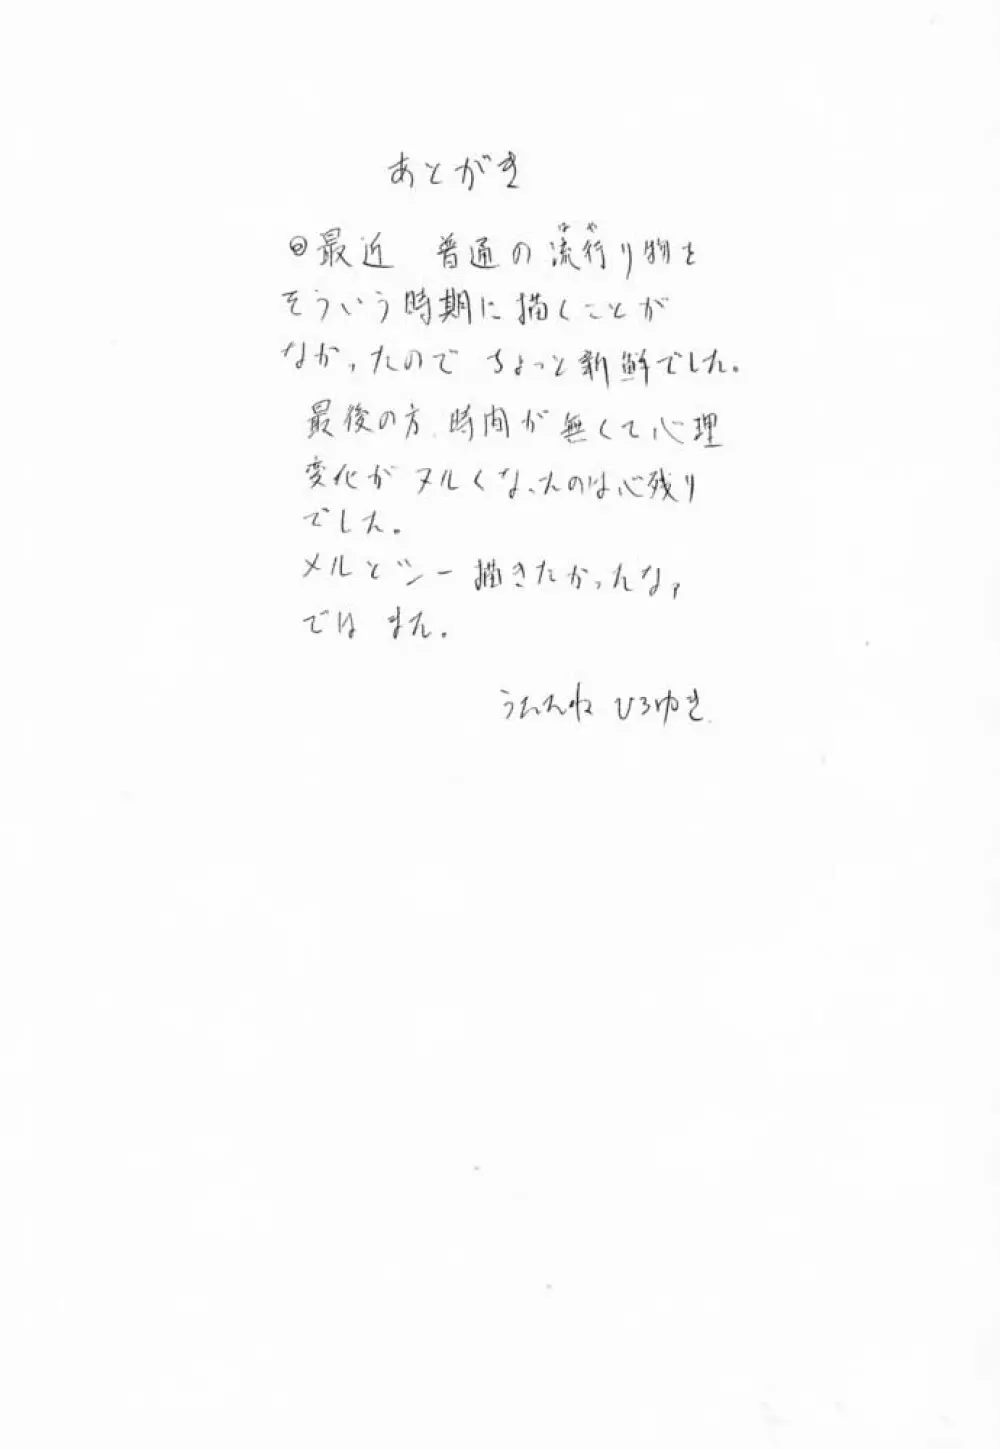 あとがき
はや
◎最近 普通の流行り物を
そういう時期に描くことが
なかったので ちょっと新鮮でした。
最後の方、時間が無くて心理
変化がヌルくなったのは心残り
でした。
メルとツー描きたかったなァ
では また。
うたたね ひろゆき